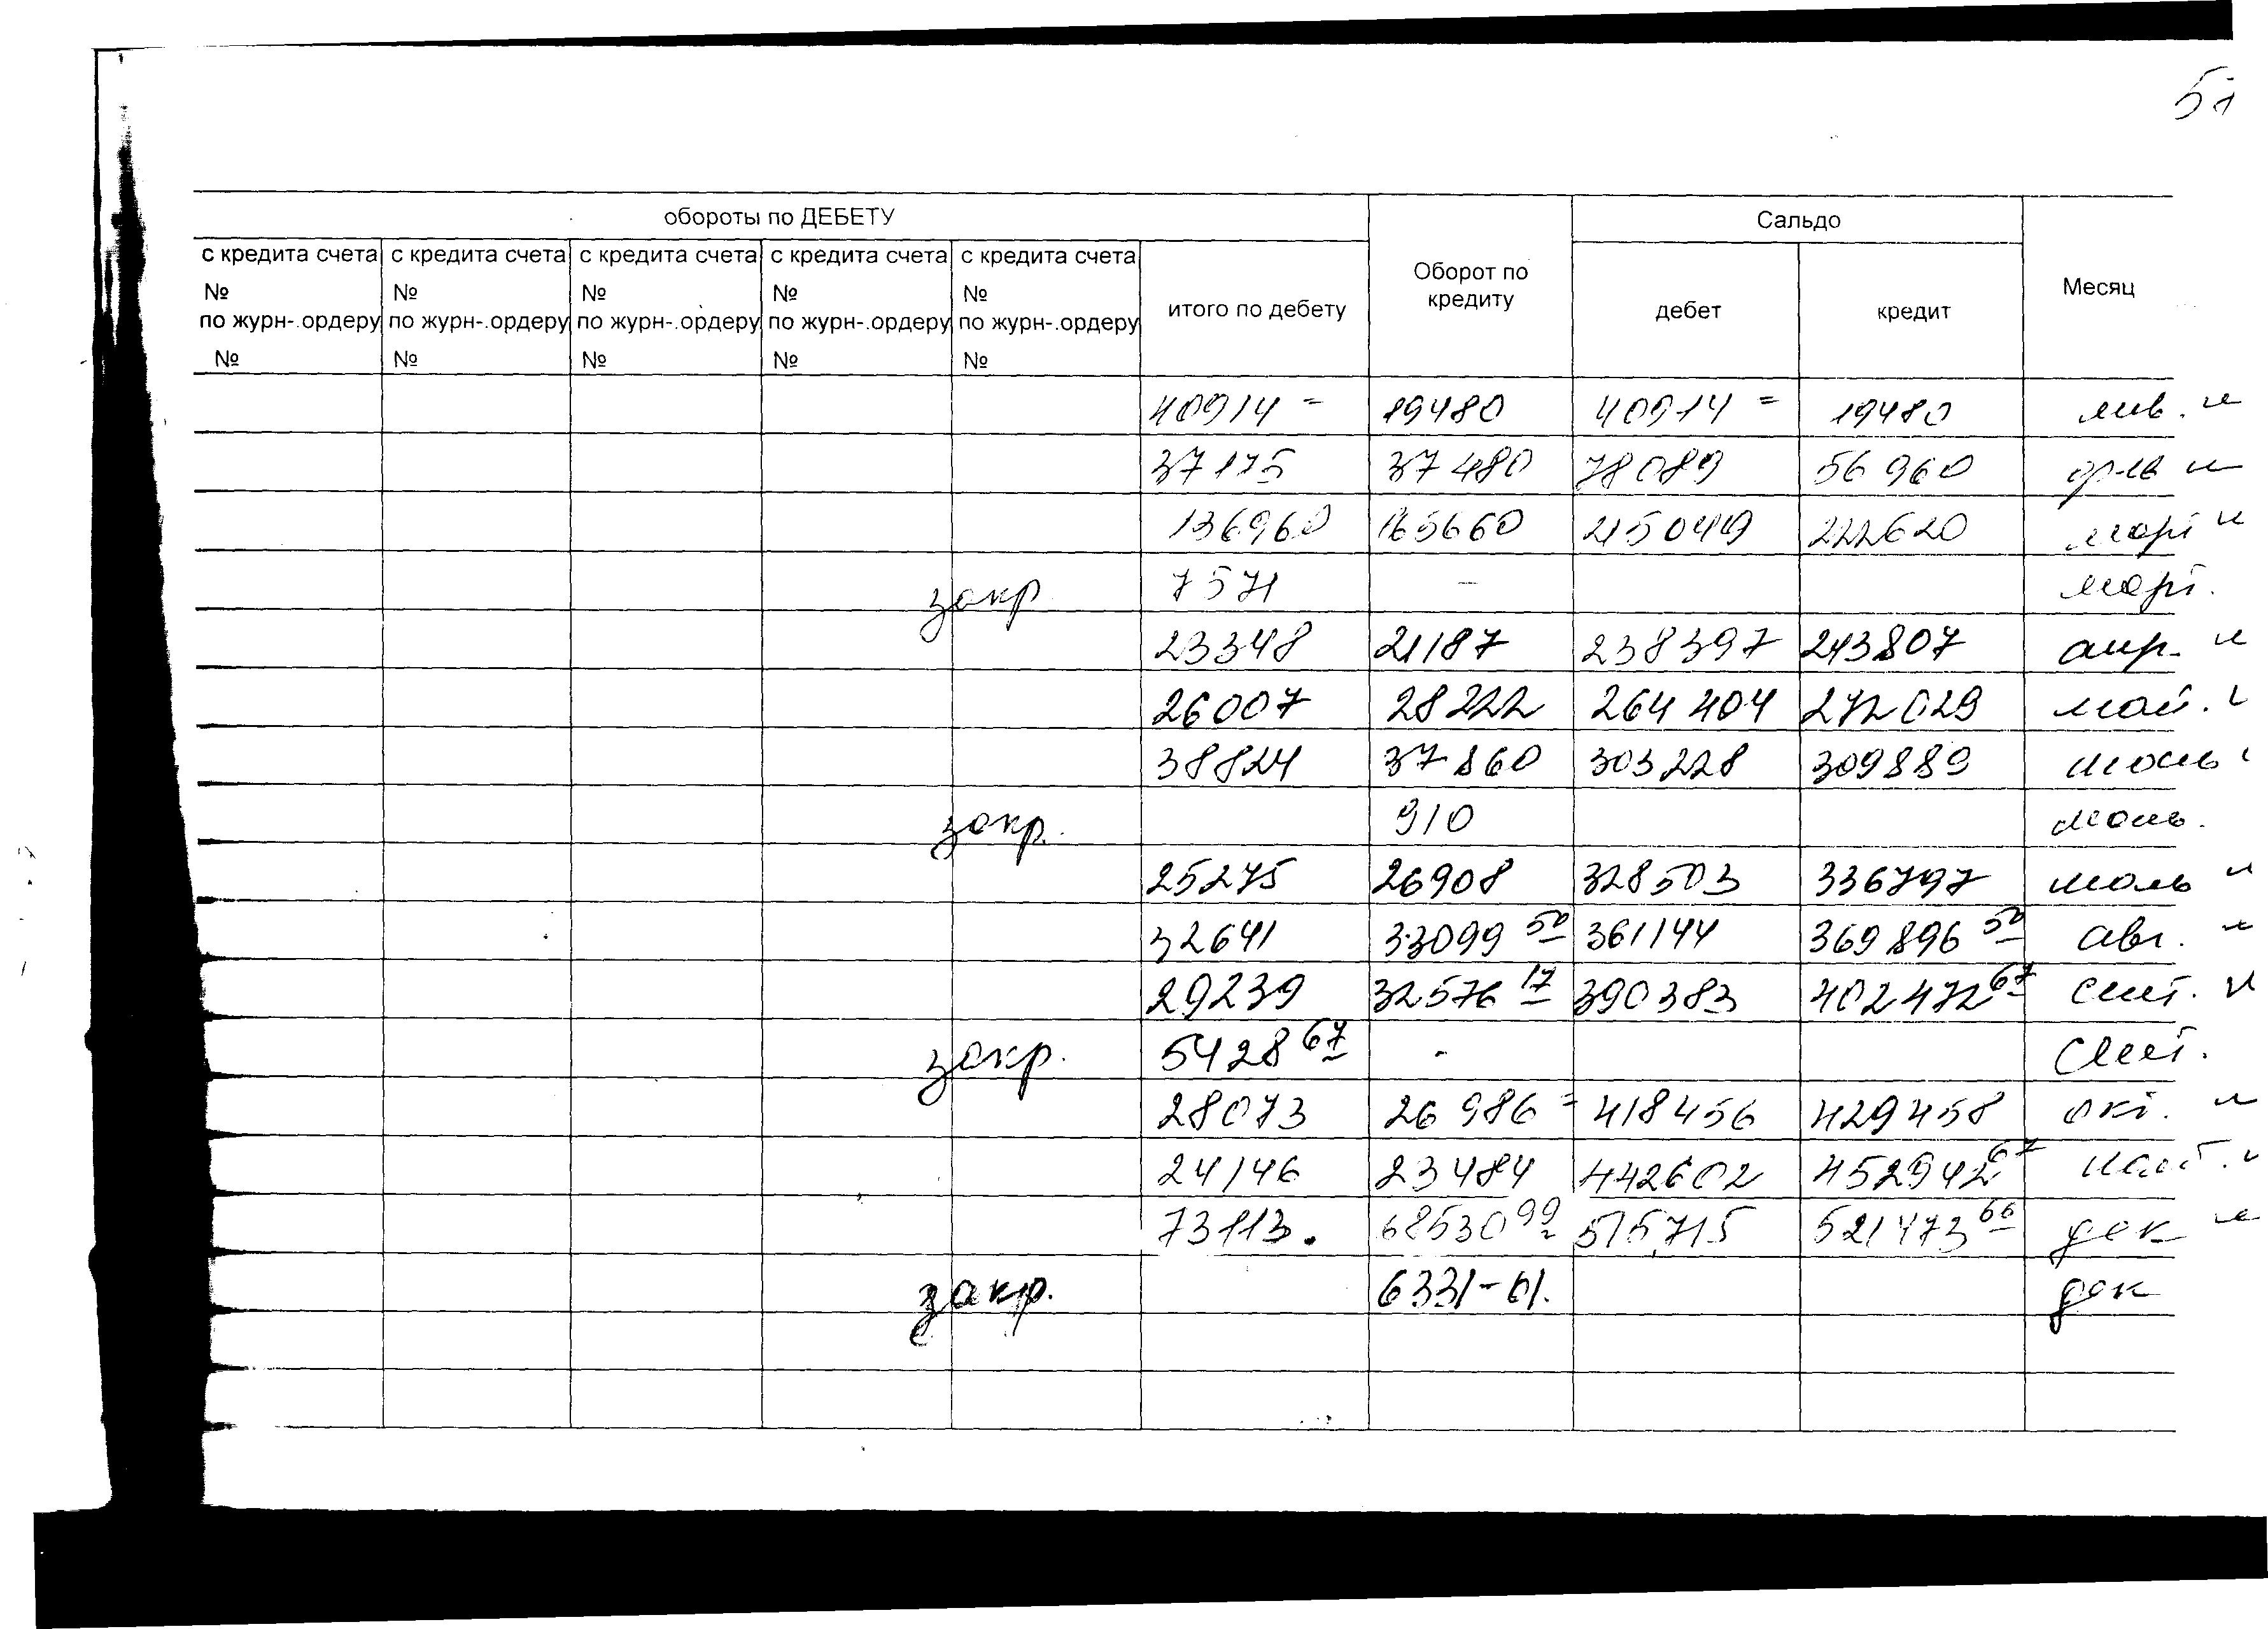 51
обороты по ДЕБЕТУ Оборот по кредиту Сальдо Месяц
с кредита счета № по журн-.ордеру № с кредита счета № по журн-.ордеру № с кредита счета № по журн-.ордеру № с кредита счета № по журн-.ордеру № с кредита счета № по журн-.ордеру № итого по дебету дебет кредит
40914 = 19480 40914 = 19480 янв.
37175 37480 78089 56960 фев
136960 165660 215049 222620 март
закр 7571 - март.
23348 21187 238397 243807 апр.
26007 28222 264404 272029 май.
38824 37860 303228 309889 июнь
закр. 910 июнь.
25275 26908 328503 336797 июль
32641 33099 50 361144 369896 50 авг.
29239 32576 17 390383 402472 67 сент.
закр. 5428 67 - сент.
28073 26986 = 418456 429458 окт.
24146 23484 442602 452942 67 нояб.
73113. 68530 99 515715 521473 66 дек
закр. 6331-61. дек